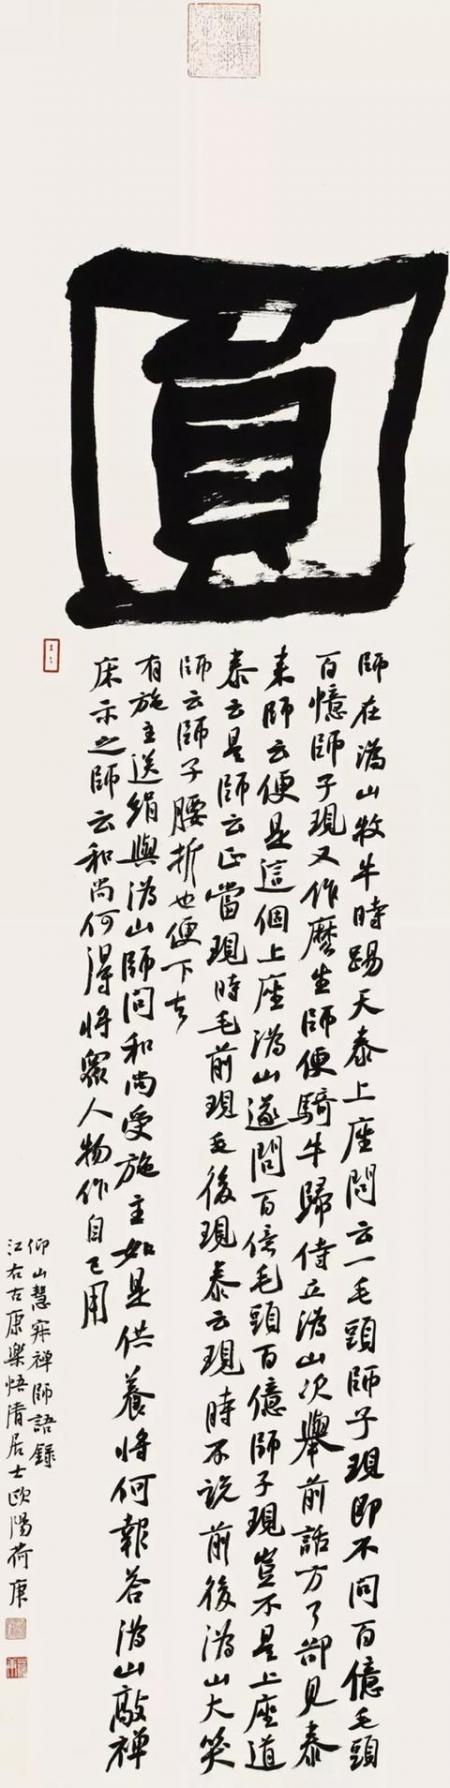 圓
師在溈山牧牛時踢天泰上座問云一毛頭師子現即不問百億毛頭
百憶師子現又作麼生師便騎牛歸侍立溈山次舉前話方了卻見泰
来師云便是這個上座溈山遂問百億毛頭百億師子現豈不是上座道
泰云是師云正當現時毛前現毛後現泰云現時不説前後溈山大笑
師云師子腰折也便下去
有施主送絹與溈山師問和尚受施主如是供養將何報答溈山敲禪
床示之師云和尚何得將眾人物作自己用
仰山慧寂禅師語録
江右古康樂悟清居士歐陽荷庚